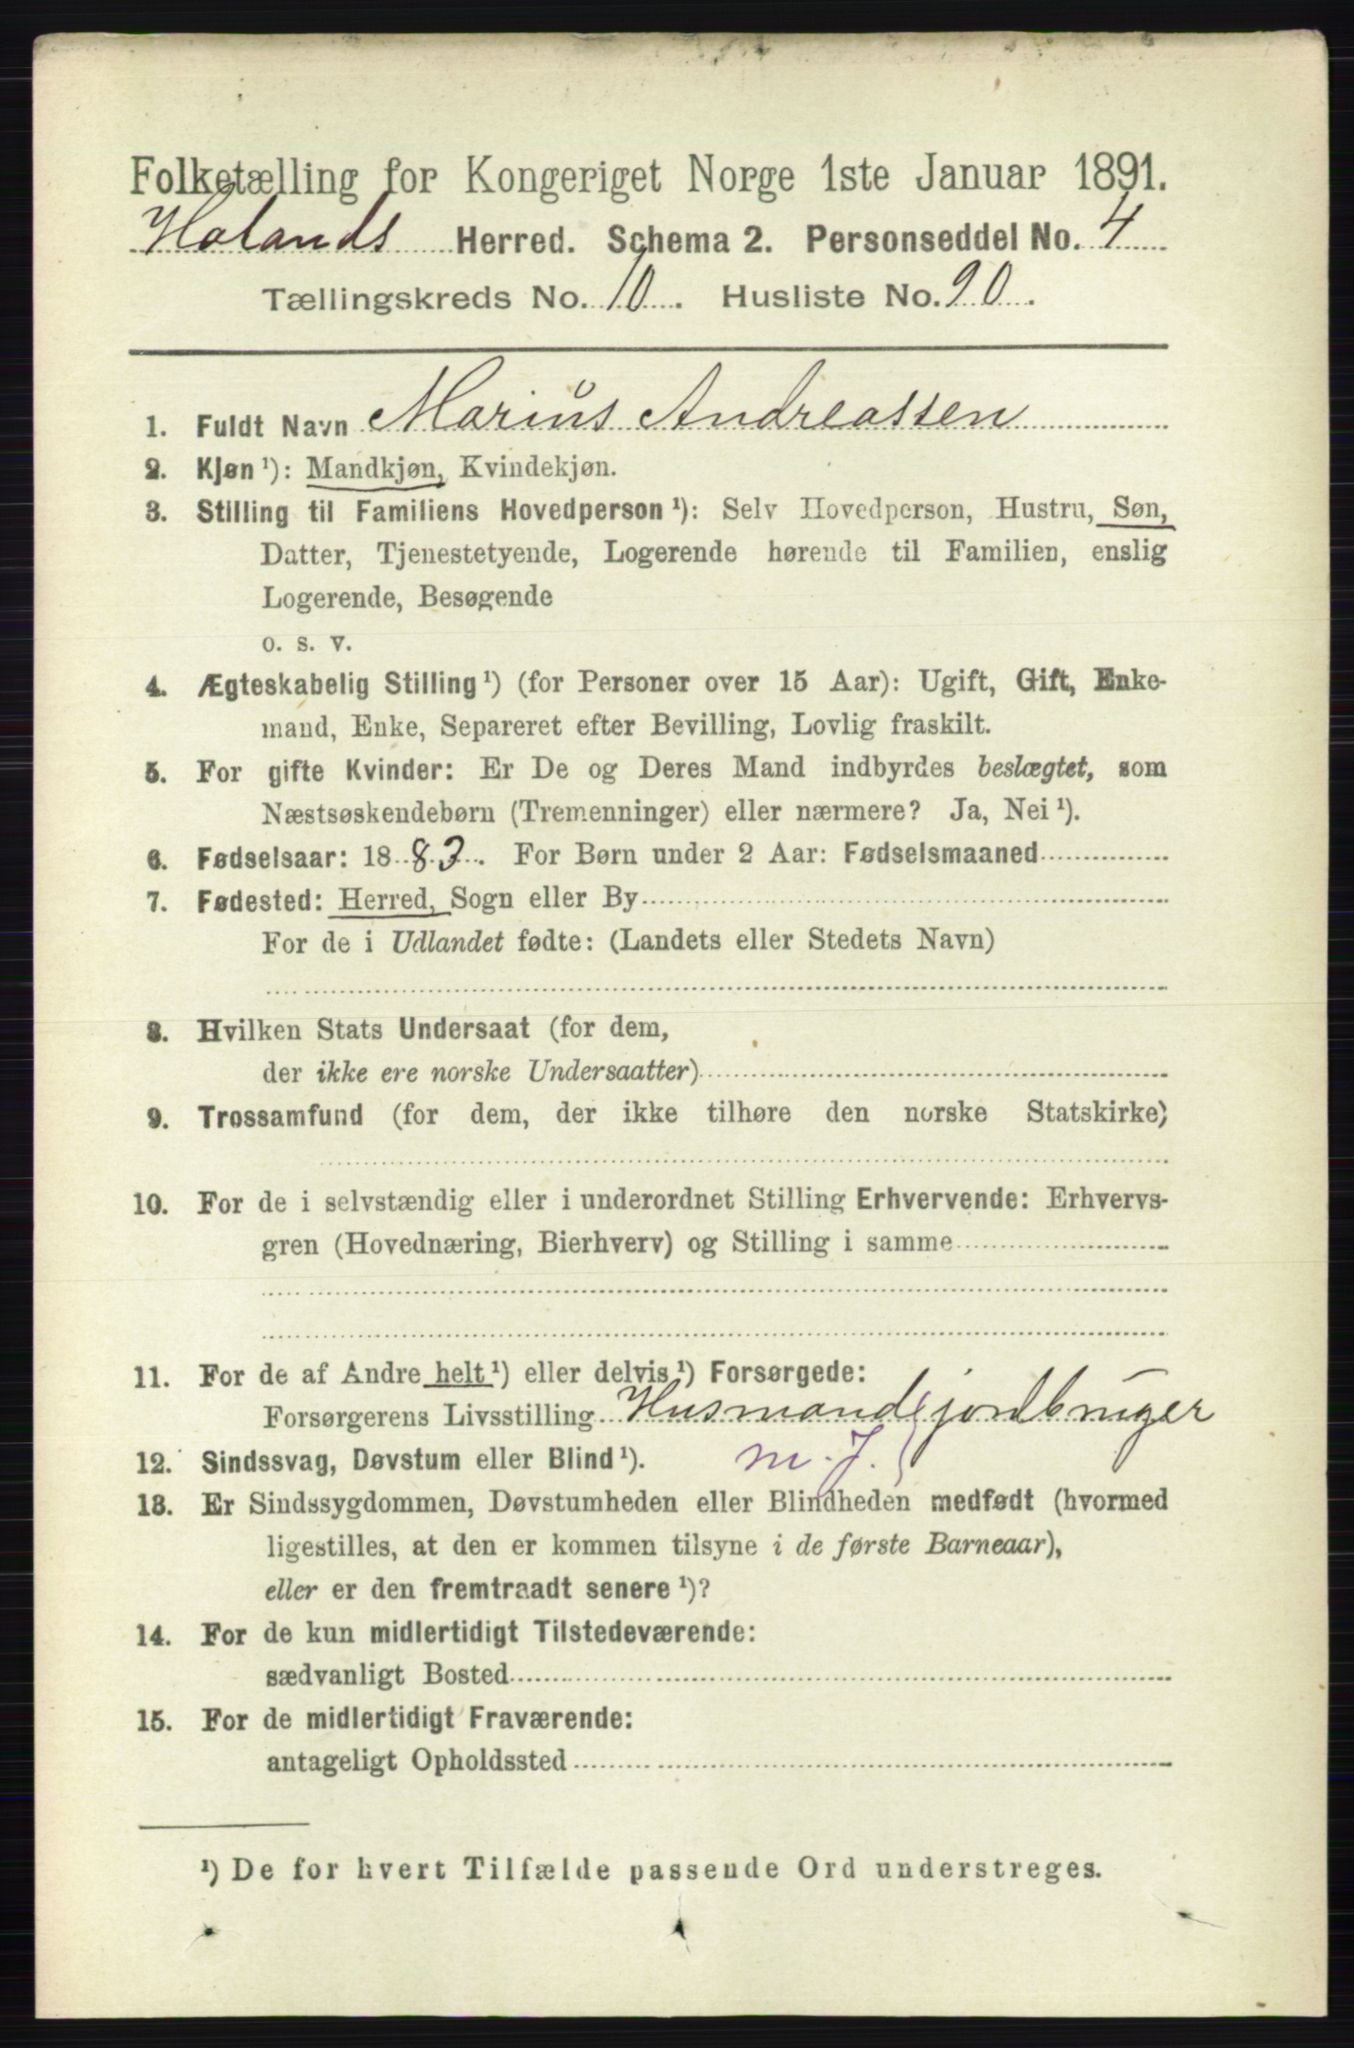 Folketælling for Kongeriget Norge 1ste Januar 1891.
Holands Herred. Schema 2. Personseddel No. 4
Tællingskreds No. 10. Husliste No. 90.
1. Fuldt Navn Marius Andreassen
2. Kjøn ¹): Mandkjøn, Kvindekjøn.
3. Stilling til Familiens Hovedperson ¹): Selv Hovedperson, Hustru, Søn,
Datter, Tjenestetyende, Logerende hørende til Familien, enslig
Logerende, Besøgende
o. s. v.
4. Ægteskabelig Stilling ¹) (for Personer over 15 Aar): Ugift, Gift, Enke-
mand, Enke, Separeret efter Bevilling, Lovlig fraskilt.
5. For gifte Kvinder: Er De og Deres Mand indbyrdes beslægtet, som
Næstsøskendebørn (Tremenninger) eller nærmere? Ja, Nei ¹).
6. Fødselsaar: 1883. For Børn under 2 Aar: Fødselsmaaned
7. Fødested: Herred, Sogn eller By
For de i Udlandet fødte: (Landets eller Stedets Navn)
8. Hvilken Stats Undersaat (for dem,
der ikke ere norske Undersaatter)
9. Trossamfund (for dem, der ikke tilhøre den norske Statskirke)
10. For de i selvstændig eller i underordnet Stilling Erhvervende: Erhvervs-
gren (Hovednæring, Bierhverv) og Stilling i samme
11. For de af Andre helt ¹) eller delvis ¹) Forsørgede:
Forsørgerens Livsstilling Husmand jordbruger
12. Sindssvag, Døvstum eller Blind ¹). m. J.
13. Er Sindssygdommen, Døvstumheden eller Blindheden medfødt (hvormed
ligestilles, at den er kommen tilsyne i de første Barneaar),
eller er den fremtraadt senere ¹)?
14. For de kun midlertidigt Tilstedeværende:
sædvanligt Bosted
15. For de midlertidigt Fraværende:
antageligt Opholdssted
¹) De for hvert Tilfælde passende Ord understreges.